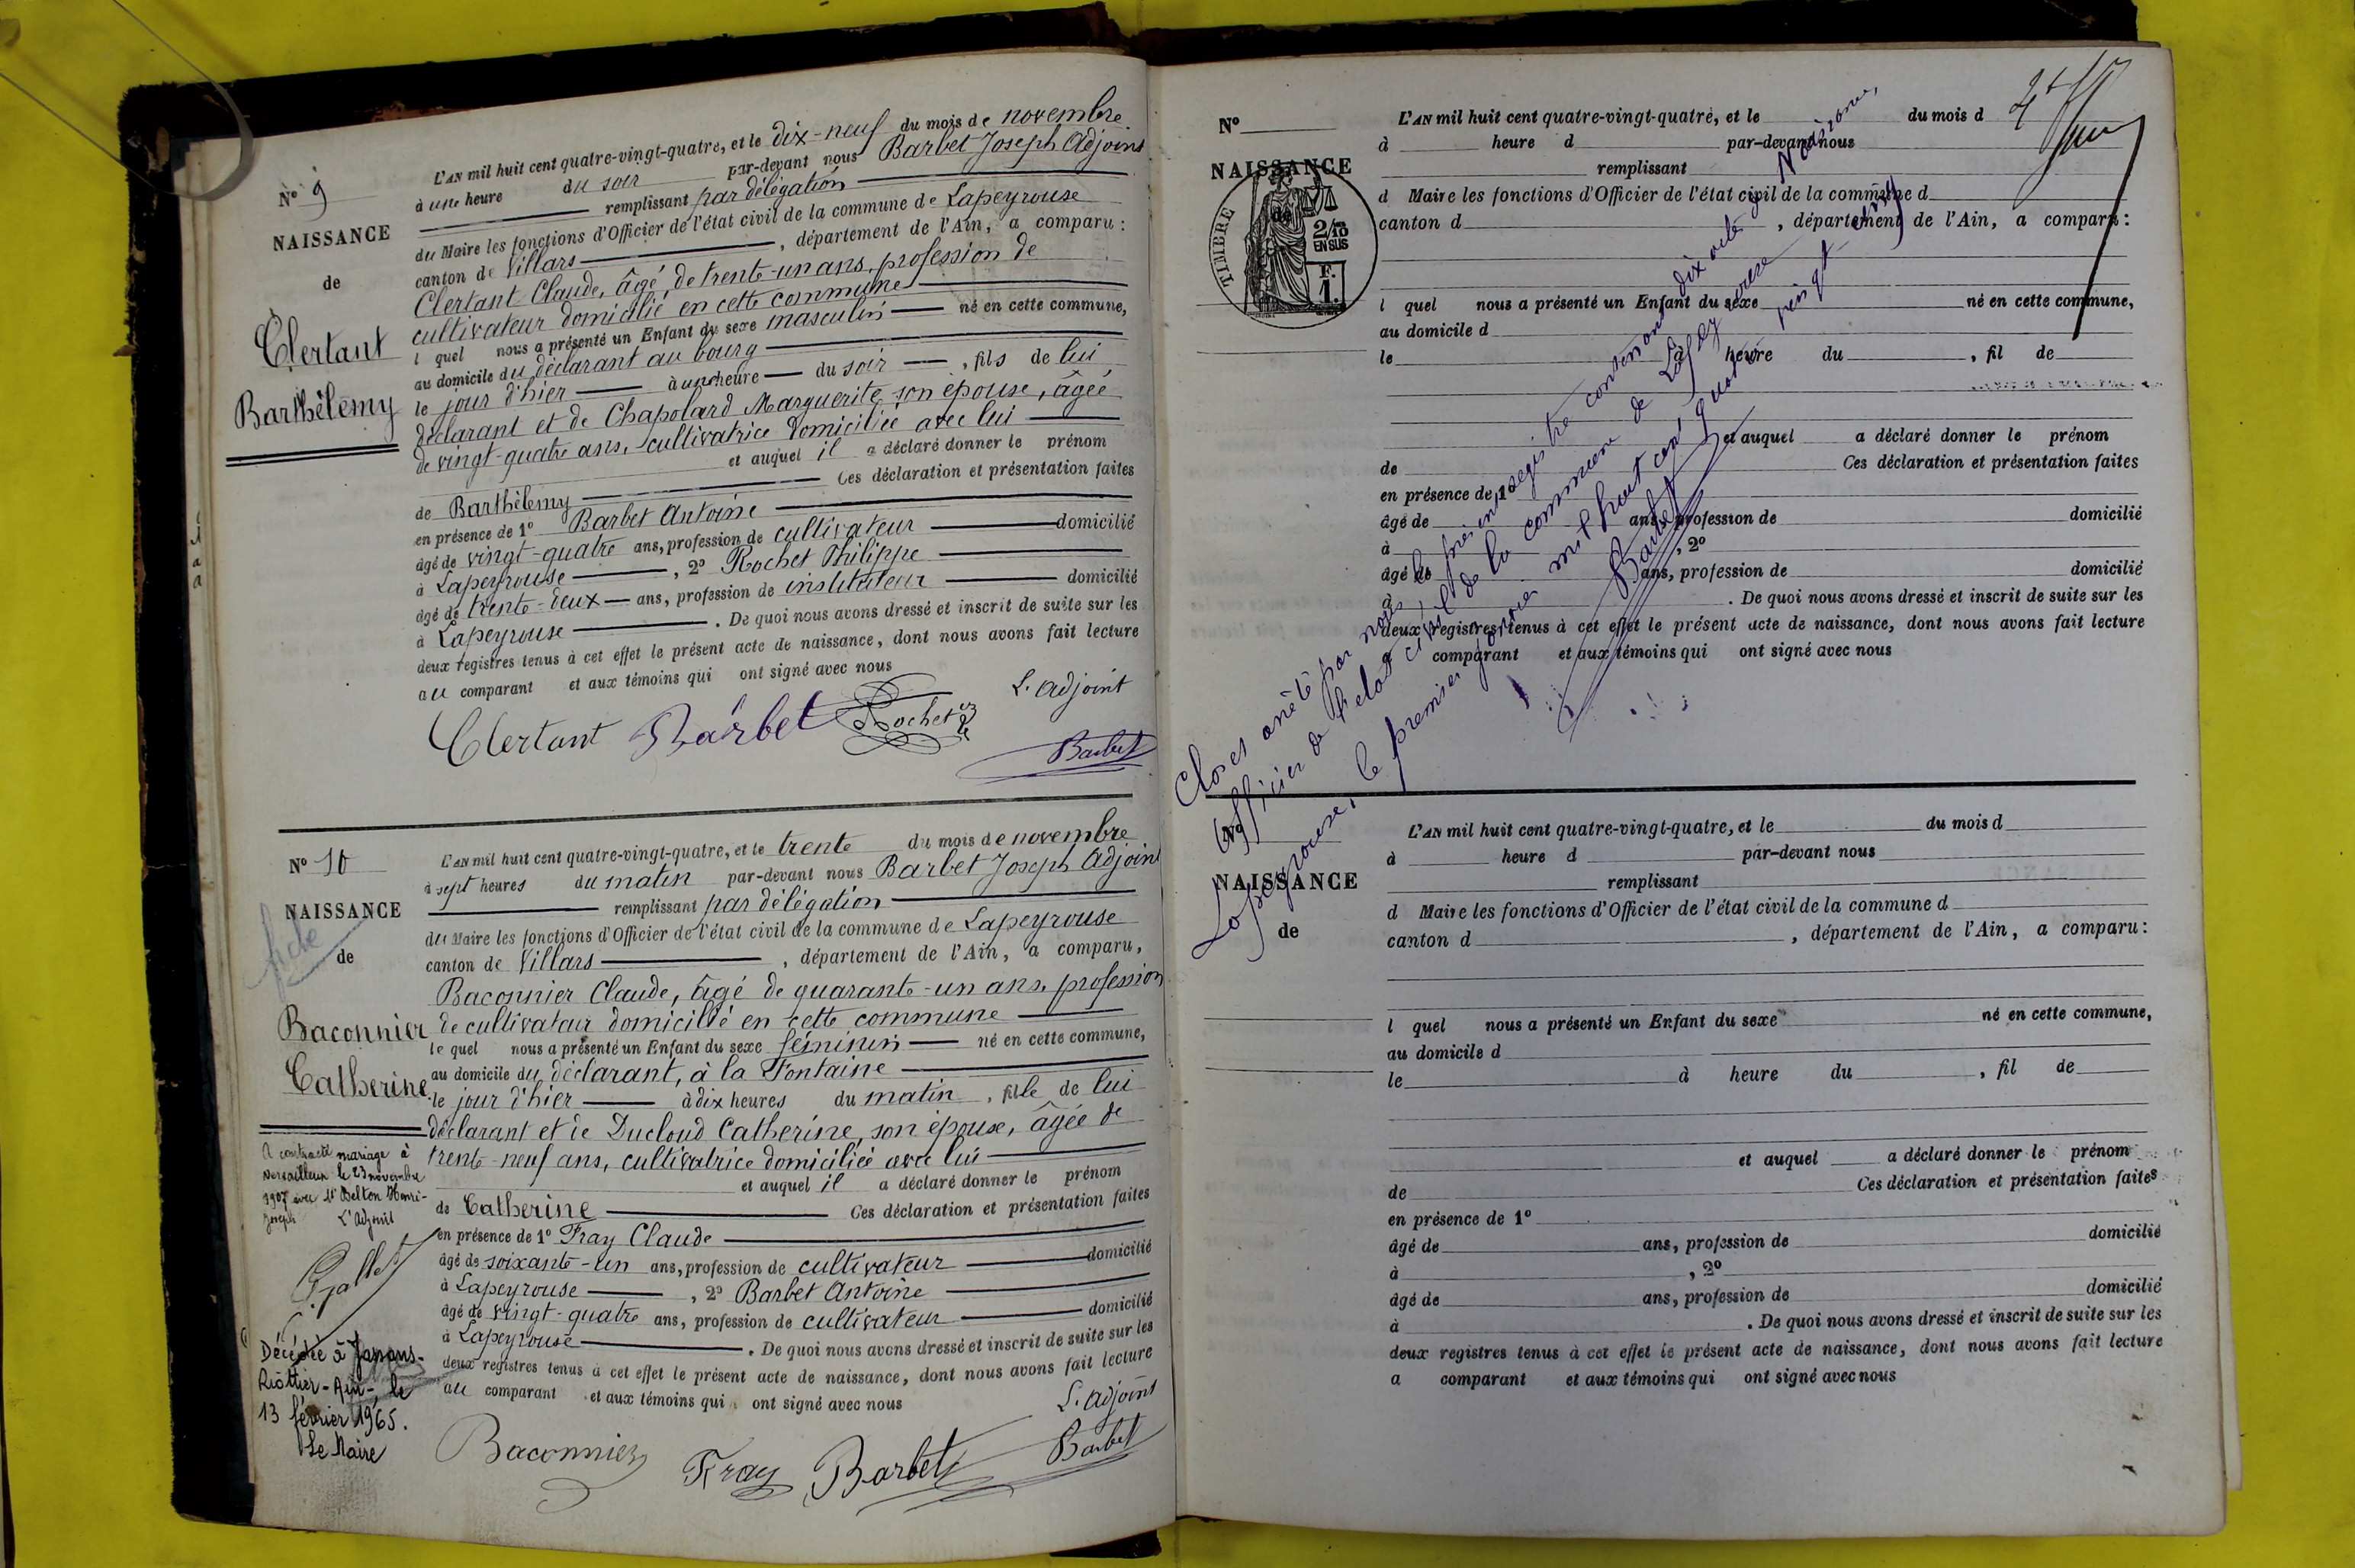 N° 9
NAISSANCE
de
Clertant
Barthêlemy
L'AN mil huit cent quatre-vingt-quatre, et le dix-neuf du mois de novembre
à une heure du soir par-devant nous Barbet Joseph Adjoint
remplissant par délégation
du Maire les fonctions d'Officier de l'état civil de la commune de Lapeyrouse
canton de Villars , département de l'Ain, a comparu :
Clertant Claude, âgé, de trente-un ans, profession de
cultivateur domicilié en cette commune
l quel nous a présenté un Enfant du sexe masculin né en cette commune,
au domicile du déclarant au bourg
le jour d'hier à une heure du soir , fils de lui
déclarant et de Chapolard Marguerite, son épouse, âgée
de vingt-quatre ans, cultivatrice domiciliée avec lui
et auquel il a déclaré donner le prénom
de Barthêlemy Ces déclaration et présentation faites
en présence de 1° Barbet Antoine
âgé de vingt-quatre ans, profession de cultivateur domicilié
à Lapeyrouse , 2° Rochet Philippe
âgé de trente-deux ans, profession de instituteur domicilié
à Lapeyrouse . De quoi nous avons dressé et inscrit de suite sur les
deux registres tenus à cet effet le présent acte de naissance, dont nous avons fait lecture
au comparant et aux témoins qui ont signé avec nous
L. adjoint
Clertant Barbet Rochet
Barbet
N° 10
NAISSANCE
de
fiche
Baconnier
Catherine
L'AN mil huit cent quatre-vingt-quatre, et le trente du mois de novembre
à sept heures du matin par-devant nous Barbet Joseph Adjoint
remplissant par délégation
du Maire les fonctions d'Officier de l'état civil de la commune de Lapeyrouse
canton de Villars , département de l'Ain, a comparu,
Baconnier Claude, âgé de quarante-un ans, profession
de cultivateur domicilié en cette commune
le quel nous a présenté un Enfant du sexe féminin né en cette commune,
au domicile du déclarant, à la Fontaine
le jour d'hier à dix heures du matin , fille de lui
déclarant et de Ducloud Catherine, son épouse, âgée de
trente-neuf ans, cultivatrice domiciliée avec lui
et auquel il a déclaré donner le prénom
de Catherine Ces déclaration et présentation faites
en présence de 1° Fray Claude
âgé de soixante-un ans, profession de cultivateur domicilié
à Lapeyrouse , 2° Barbet Antoine
âgé de vingt-quatre ans, profession de cultivateur domicilié
à Lapeyrouse . De quoi nous avons dressé et inscrit de suite sur les
deux registres tenus à cet effet le présent acte de naissance, dont nous avons fait lecture
au comparant et aux témoins qui ont signé avec nous
L. adjoint
Baconnier Fray Barbet Barbet
A contracté mariage à
Versailleux le 23 novembre
1907 avec Mr Belton Henri-
Joseph L'Adjoint
Décédée à Jassans-
Riottier-Ain-, le
13 février 1965.
Le Maire
N°
NAISSANCE
de
TIMBRE
2/10
EN SUS
F.
1.
L'AN mil huit cent quatre-vingt-quatre, et le du mois d
à heure d par-devant nous
remplissant
d Maire les fonctions d'Officier de l'état civil de la commune d
canton d , département de l'Ain, a comparu :
l quel nous a présenté un Enfant du sexe né en cette commune,
au domicile d
le à heure du , fil de
et auquel a déclaré donner le prénom
de Ces déclaration et présentation faites
en présence de 1°
âgé de ans, profession de domicilié
à , 2°
âgé de ans, profession de domicilié
à . De quoi nous avons dressé et inscrit de suite sur les
deux registres tenus à cet effet le présent acte de naissance, dont nous avons fait lecture
a comparant et aux témoins qui ont signé avec nous
Clos et arrêté par nous, le présent registre contenant dix actes de Naissance,
Officier de l'état civil de la commune de Lapeyrouse
Lapeyrouse, le premier janvier mil huit cent quatre vingt cinq
Barbet
N°
NAISSANCE
de
L'AN mil huit cent quatre-vingt-quatre, et le du mois d
à heure d par-devant nous
remplissant
d Maire les fonctions d'Officier de l'état civil de la commune d
canton d , département de l'Ain, a comparu :
l quel nous a présenté un Enfant du sexe né en cette commune,
au domicile d
le à heure du , fil de
et auquel a déclaré donner le prénom
de Ces déclaration et présentation faites
en présence de 1°
âgé de ans, profession de domicilié
à , 2°
âgé de ans, profession de domicilié
à . De quoi nous avons dressé et inscrit de suite sur les
deux registres tenus à cet effet le présent acte de naissance, dont nous avons fait lecture
a comparant et aux témoins qui ont signé avec nous